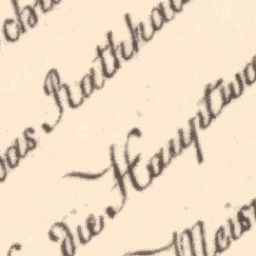 das Rathhau
die Hauptwa
Meis